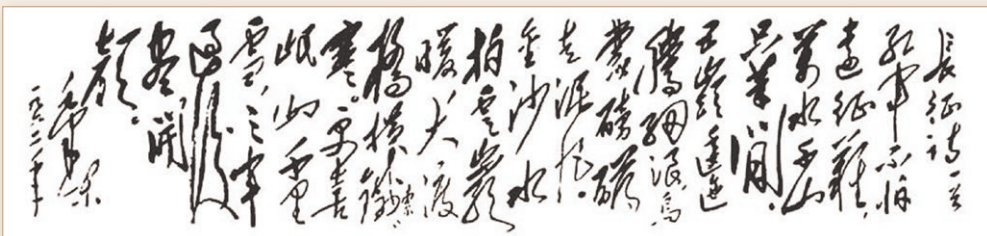 長征诗一首
紅軍不怕
遠征難，
萬水千山
只等閒。
五嶺逶迤
騰細浪，烏
蒙磅礴
走泥丸。
金沙水
拍雲崖
暖，大渡
橋橫鐵索
寒。更喜
岷山千里
雪，三軍
過後
盡開
顏。
毛澤東
一九六二年